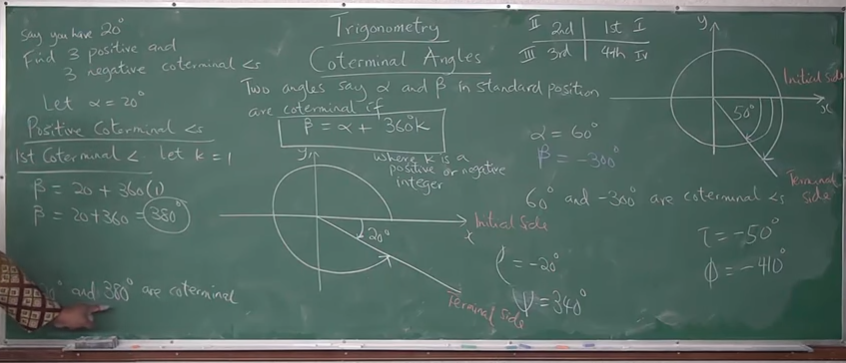 Say you have 20°
Find 3 positive and
3 negative coterminal ∠s
Let α = 20°
Positive Coterminal ∠s
1st Coterminal ∠ Let k = 1
β = 20 + 360(1)
β = 20 + 360 = 380°
and 380° are coterminal
Trigonometry
Coterminal Angles
Two angles say α and β in standard position
are coterminal if
β = α + 360°k
where k is a
positive or negative
integer
y
20°
Initial side
x
Terminal side
II 2nd 1st I
III 3rd 4th IV
α = 60°
β = -300°
60° and -300° are coterminal ∠s
= -20°
ψ = 340°
y
Initial side
x
50°
Terminal
side
τ = -50°
ϕ = -410°